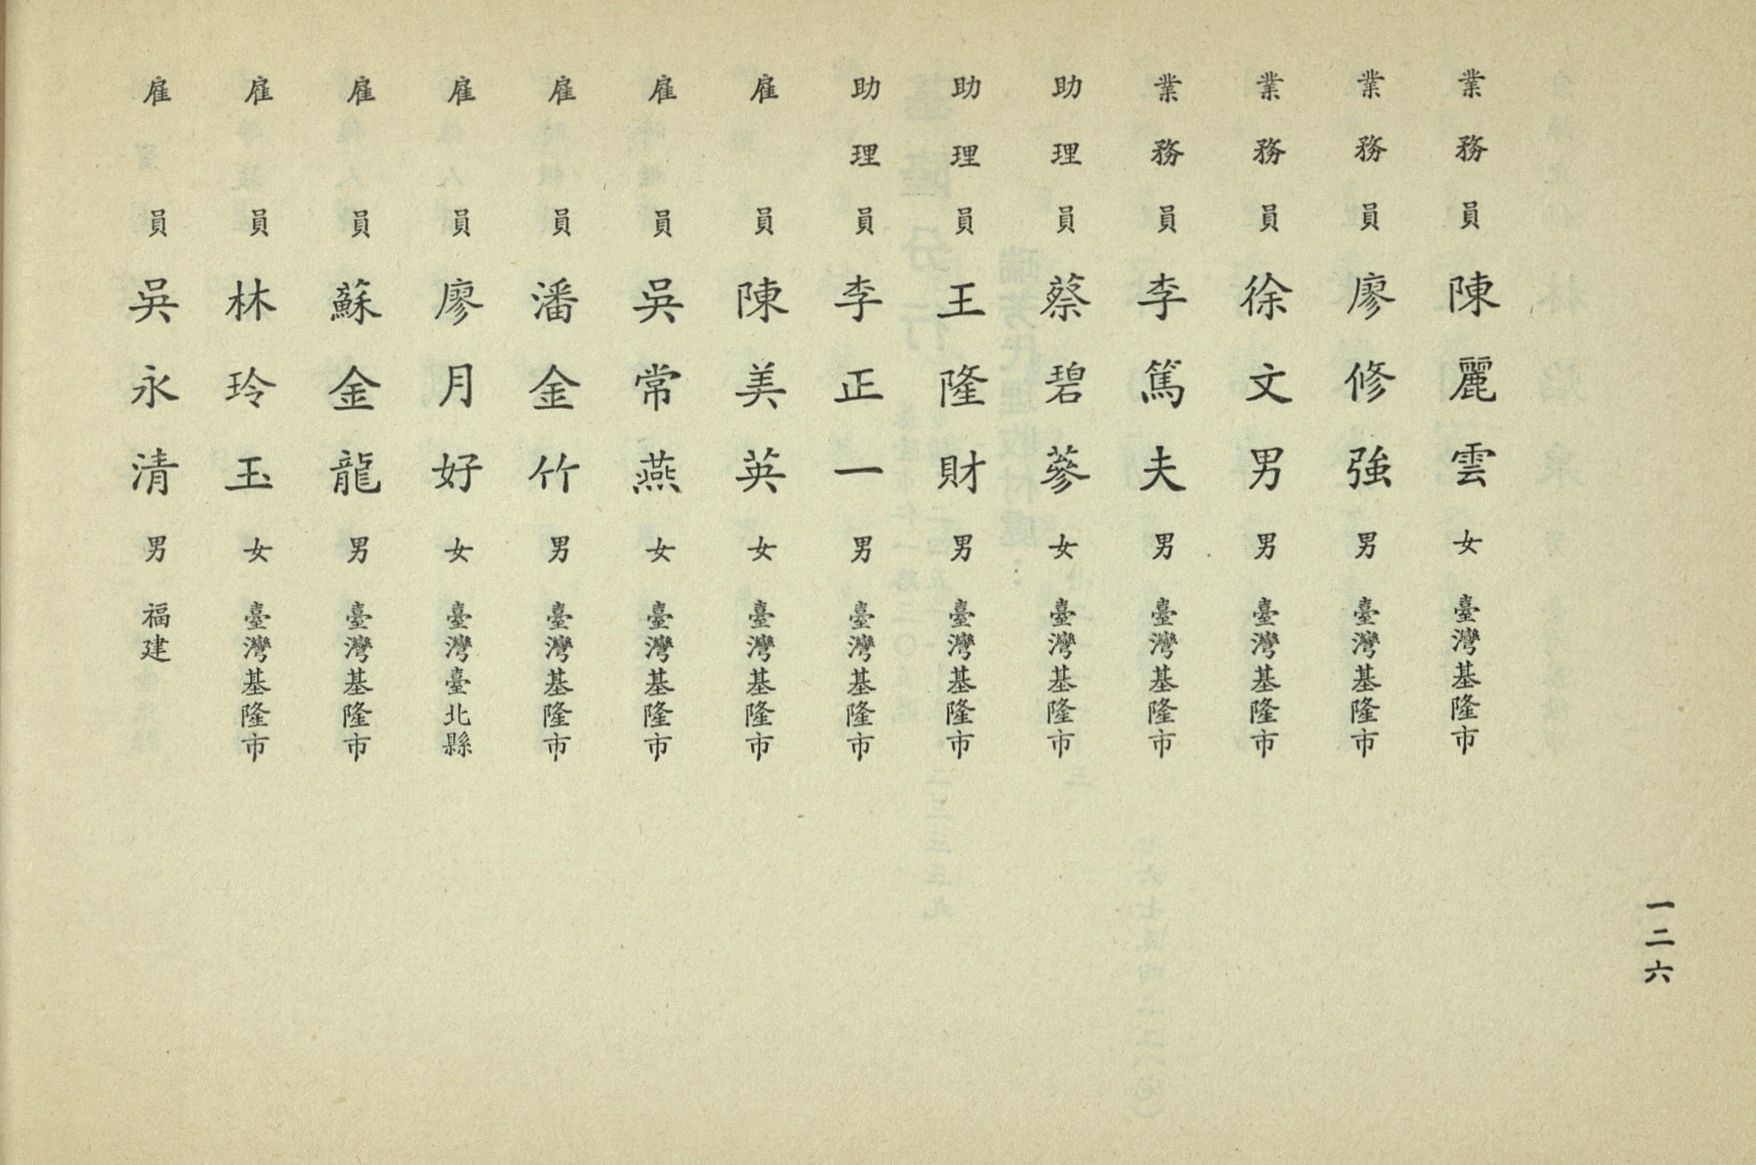 業務員 陳麗雲 女 臺灣基隆市
業務員 廖修強 男 臺灣基隆市
業務員 徐文男 男 臺灣基隆市
業務員 李篤夫 男 臺灣基隆市
助理員 蔡碧蔘 女 臺灣基隆市
助理員 王隆財 男 臺灣基隆市
助理員 李正一 男 臺灣基隆市
雇員 陳美英 女 臺灣基隆市
雇員 吳常燕 女 臺灣基隆市
雇員 潘金竹 男 臺灣基隆市
雇員 廖月好 女 臺灣臺北縣
雇員 蘇金龍 男 臺灣基隆市
雇員 林玲玉 女 臺灣基隆市
雇員 吳永清 男 福建
一二六